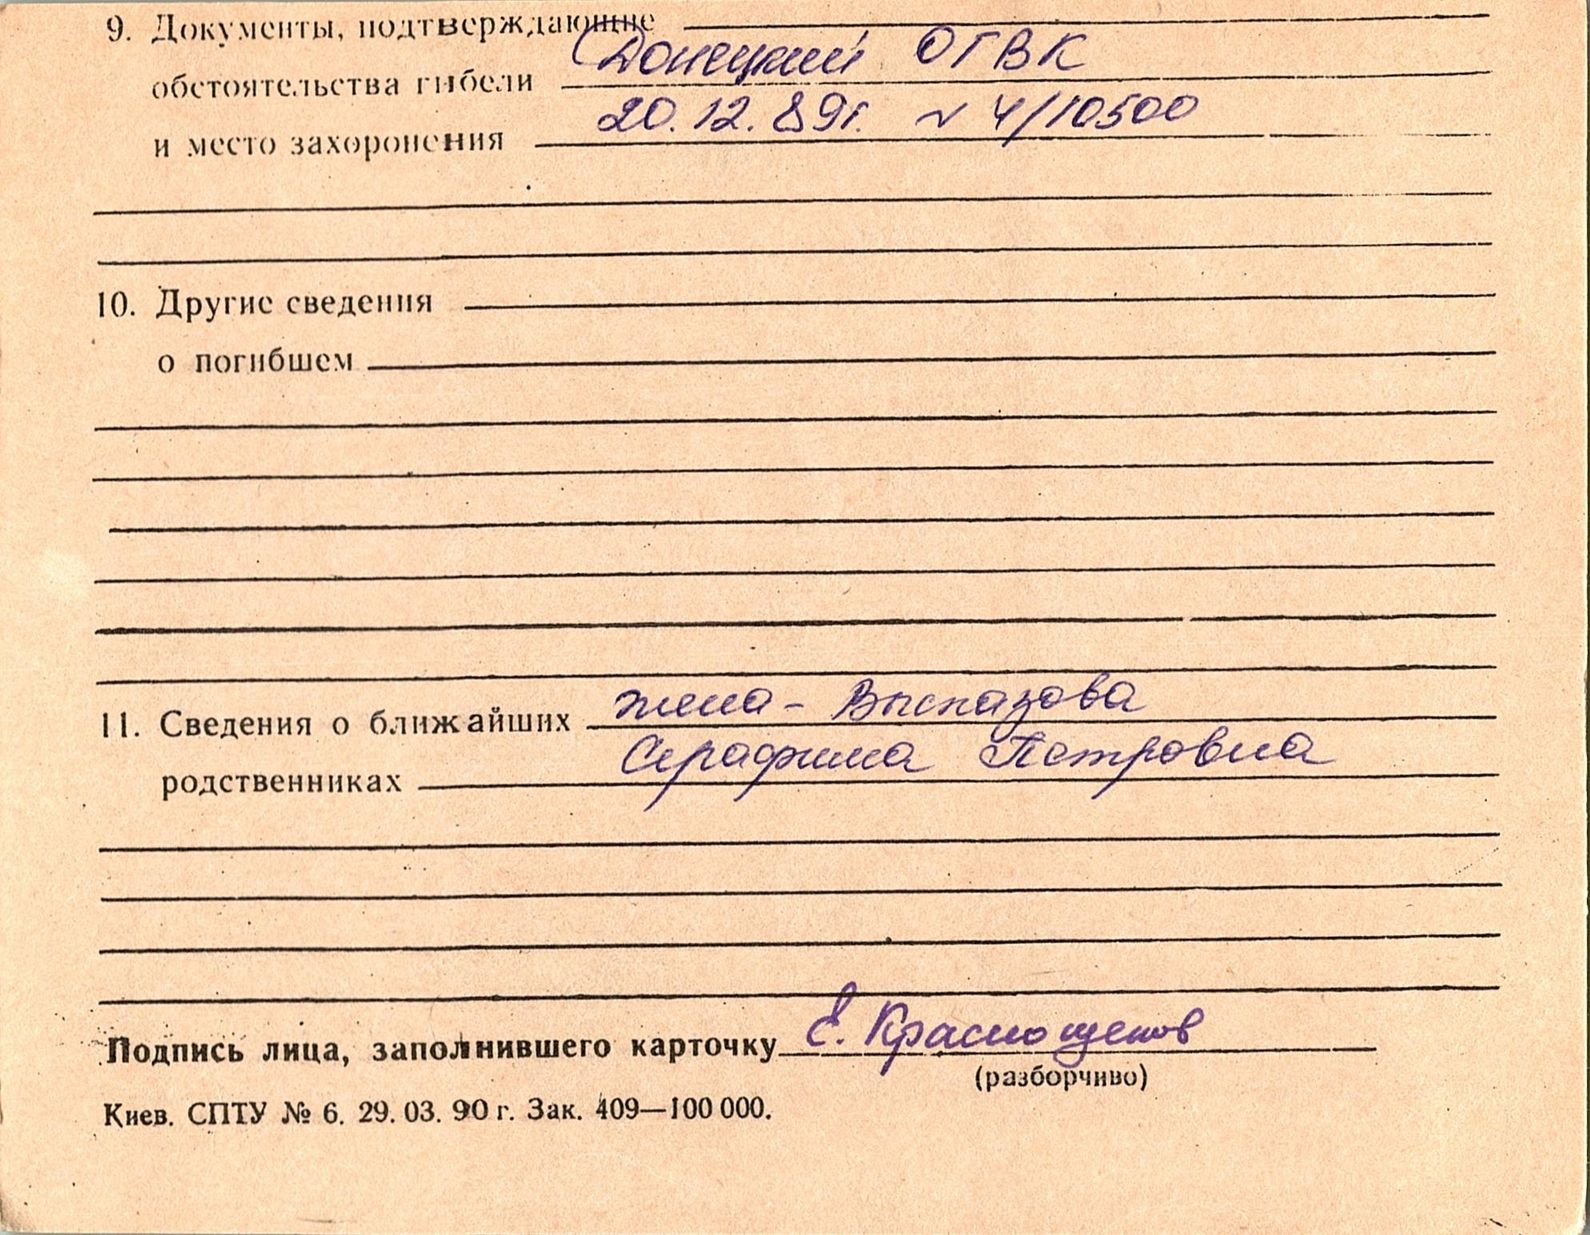 9. Документы, подтверждающие
Донецкий ОГВК
обстоятельства гибели
20.12.89г. № 4/10500
и место захоронения
10. Другие сведения
о погибшем
11. Сведения о ближайших жена - Высказова
родственниках Серафима Петровна
Подпись лица, заполнившего карточку Е. Краснощеков
(разборчиво)
Киев. СПТУ № 6. 29. 03. 90 г. Зак. 409—100 000.